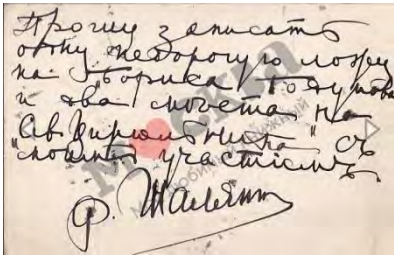 Прошу записать
одну недорогую ложу
на "Бориса Годунова"
и два места на
"Сев. Цирюльника" съ
моимъ участіемъ
Ф. Шаляпин
МОСКВА